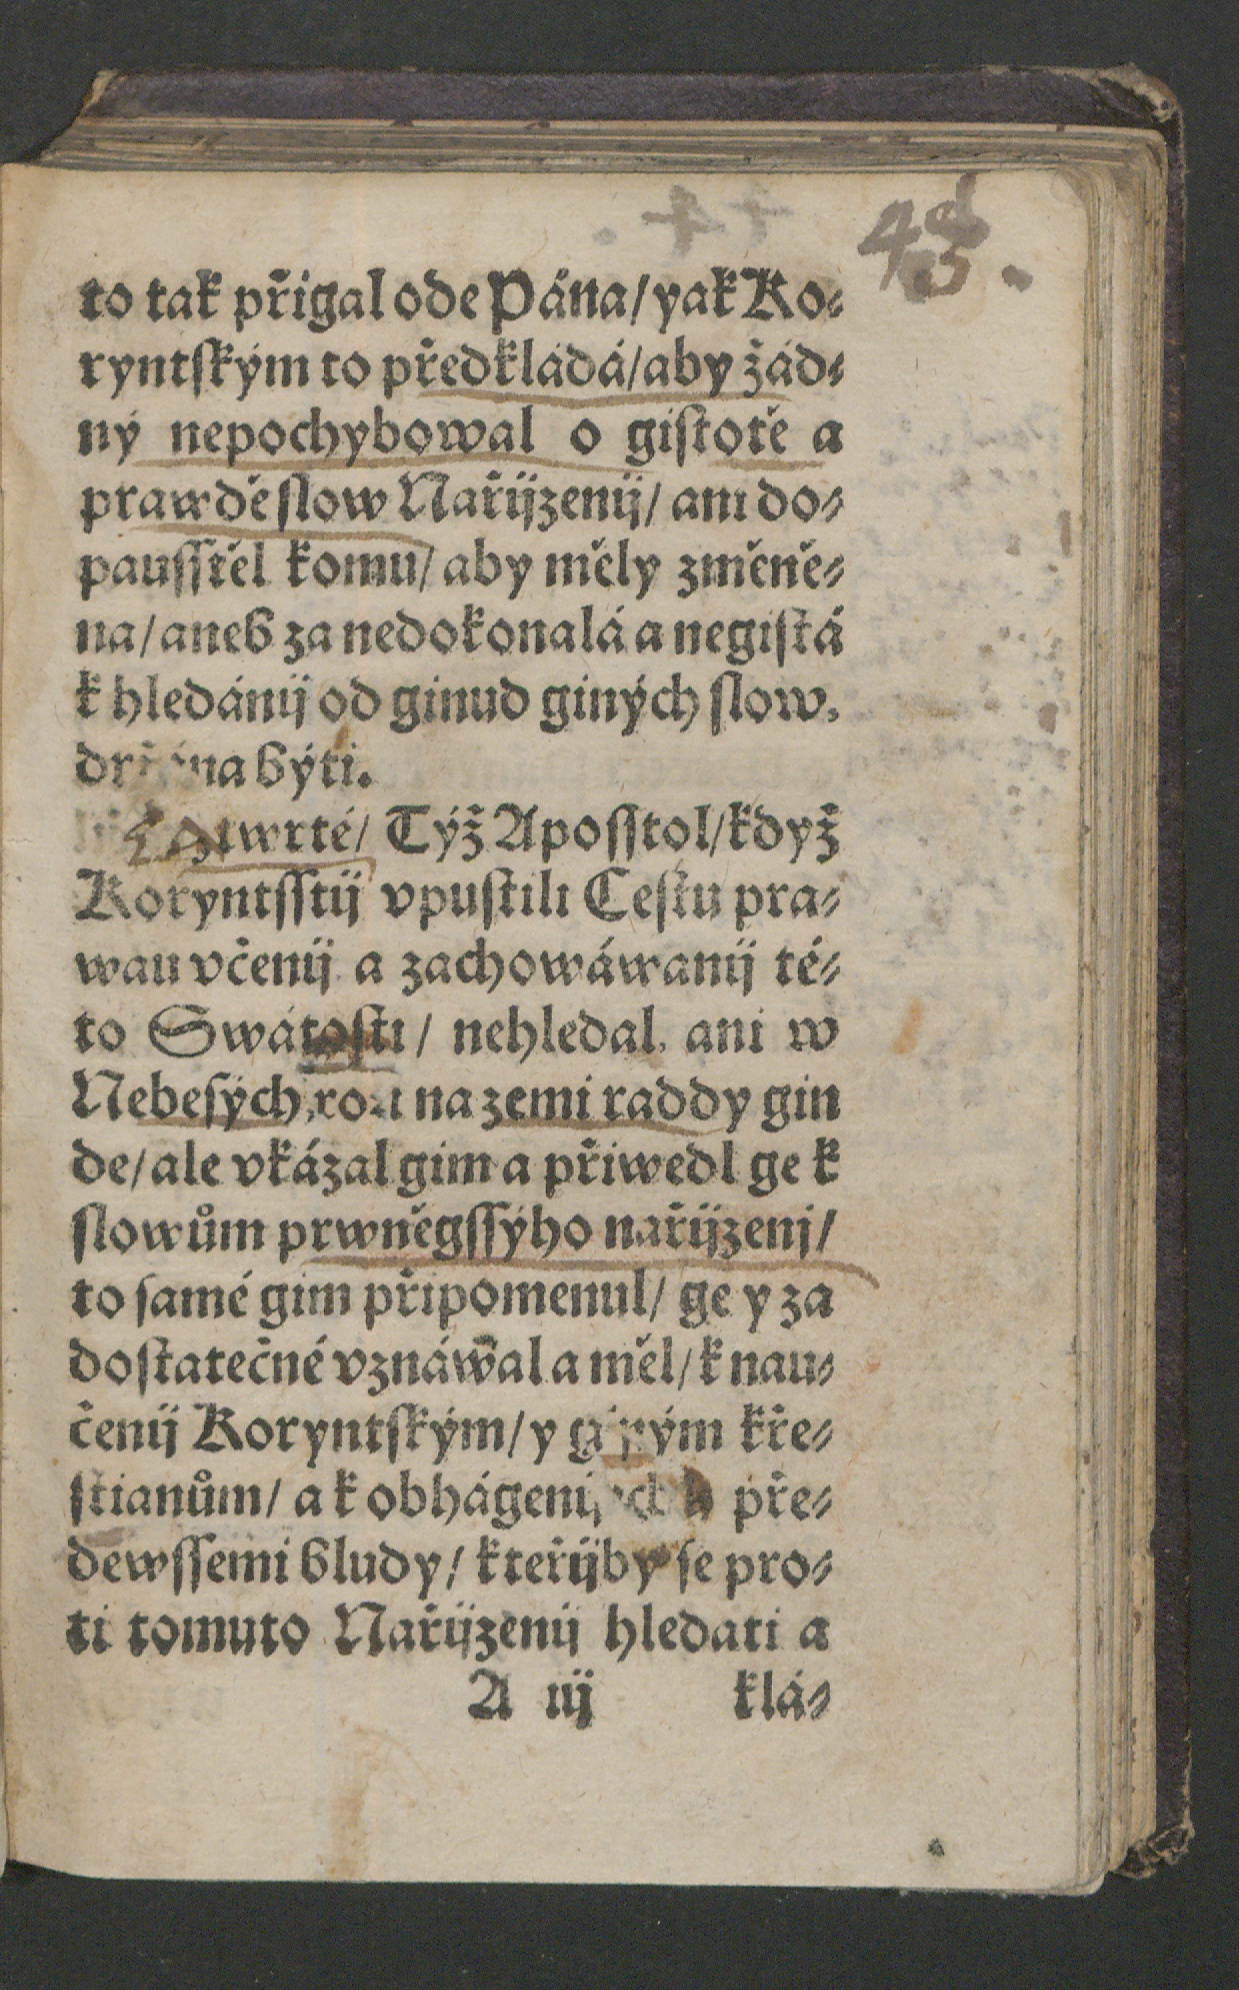 to tak přigal ode Pána/ yak Ko⸗
ryntſkým to předkládá/ aby žád⸗
ný nepochybowal o giſtotě a
prawdě ſlow Nařijzenij/ ani do⸗
pauſſtěl komu/ aby měly změně⸗
na/ aneb za nedokonalá a negiſtá
k hledánij od ginud giných ſlow,
býti.
Týž Apoſſtol/ když
Koryntſſtij vpuſtili Ceſtu pra⸗
wau včenij a zachowáwanij té⸗
to Swátoſti/ nehledal, ani w
Nebeſých, na zemi raddy gin
de/ ale vkázal gim a přiwedl ge k
ſlowům prwněgſſýho nařijzenj/
to ſamé gim připomenul/ ge y za
doſtatečné vznáwal a měl/ k nau⸗
čenij Koryntſkým/ y giným kře⸗
ſtianům/ a k obhágenij pře⸗
dewſſemi bludy/ kteřijby ſe pro⸗
ti tomuto Nařijzenij hledati a
A iij klá⸗